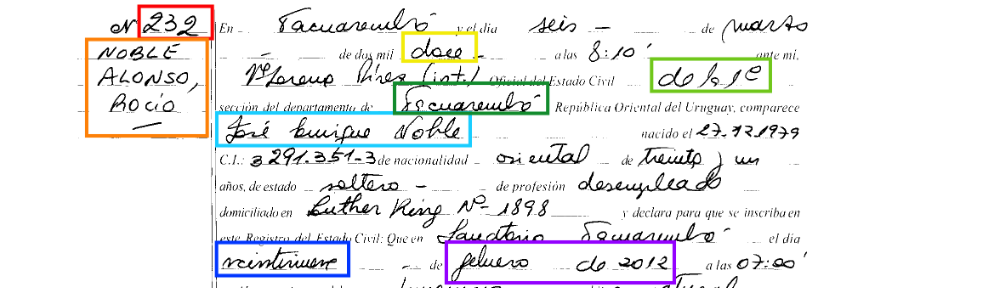 Nº 232 En Tacuarembó y el día seis – de marzo
NOBLE - de dos mil doce - a las 8:10' ante mí,
ALONSO, Mª Lorena Pírez (int.) Oficial del Estado Civil de la 1ª
ROCÍO sección del departamento de Tacuarembó República Oriental del Uruguay, comparece
— José Enrique Noble nacido el 27.12.1979
C.I.: 3291.351-3 de nacionalidad oriental de treinta y un
años, de estado soltero – de profesión desempleado
domiciliado en Luther King Nº 1898 y declara para que se inscriba en
este Registro del Estado Civil: Que en Sanatorio Tacuarembó el día
veintinueve - de febrero de 2012 a las 07:00'